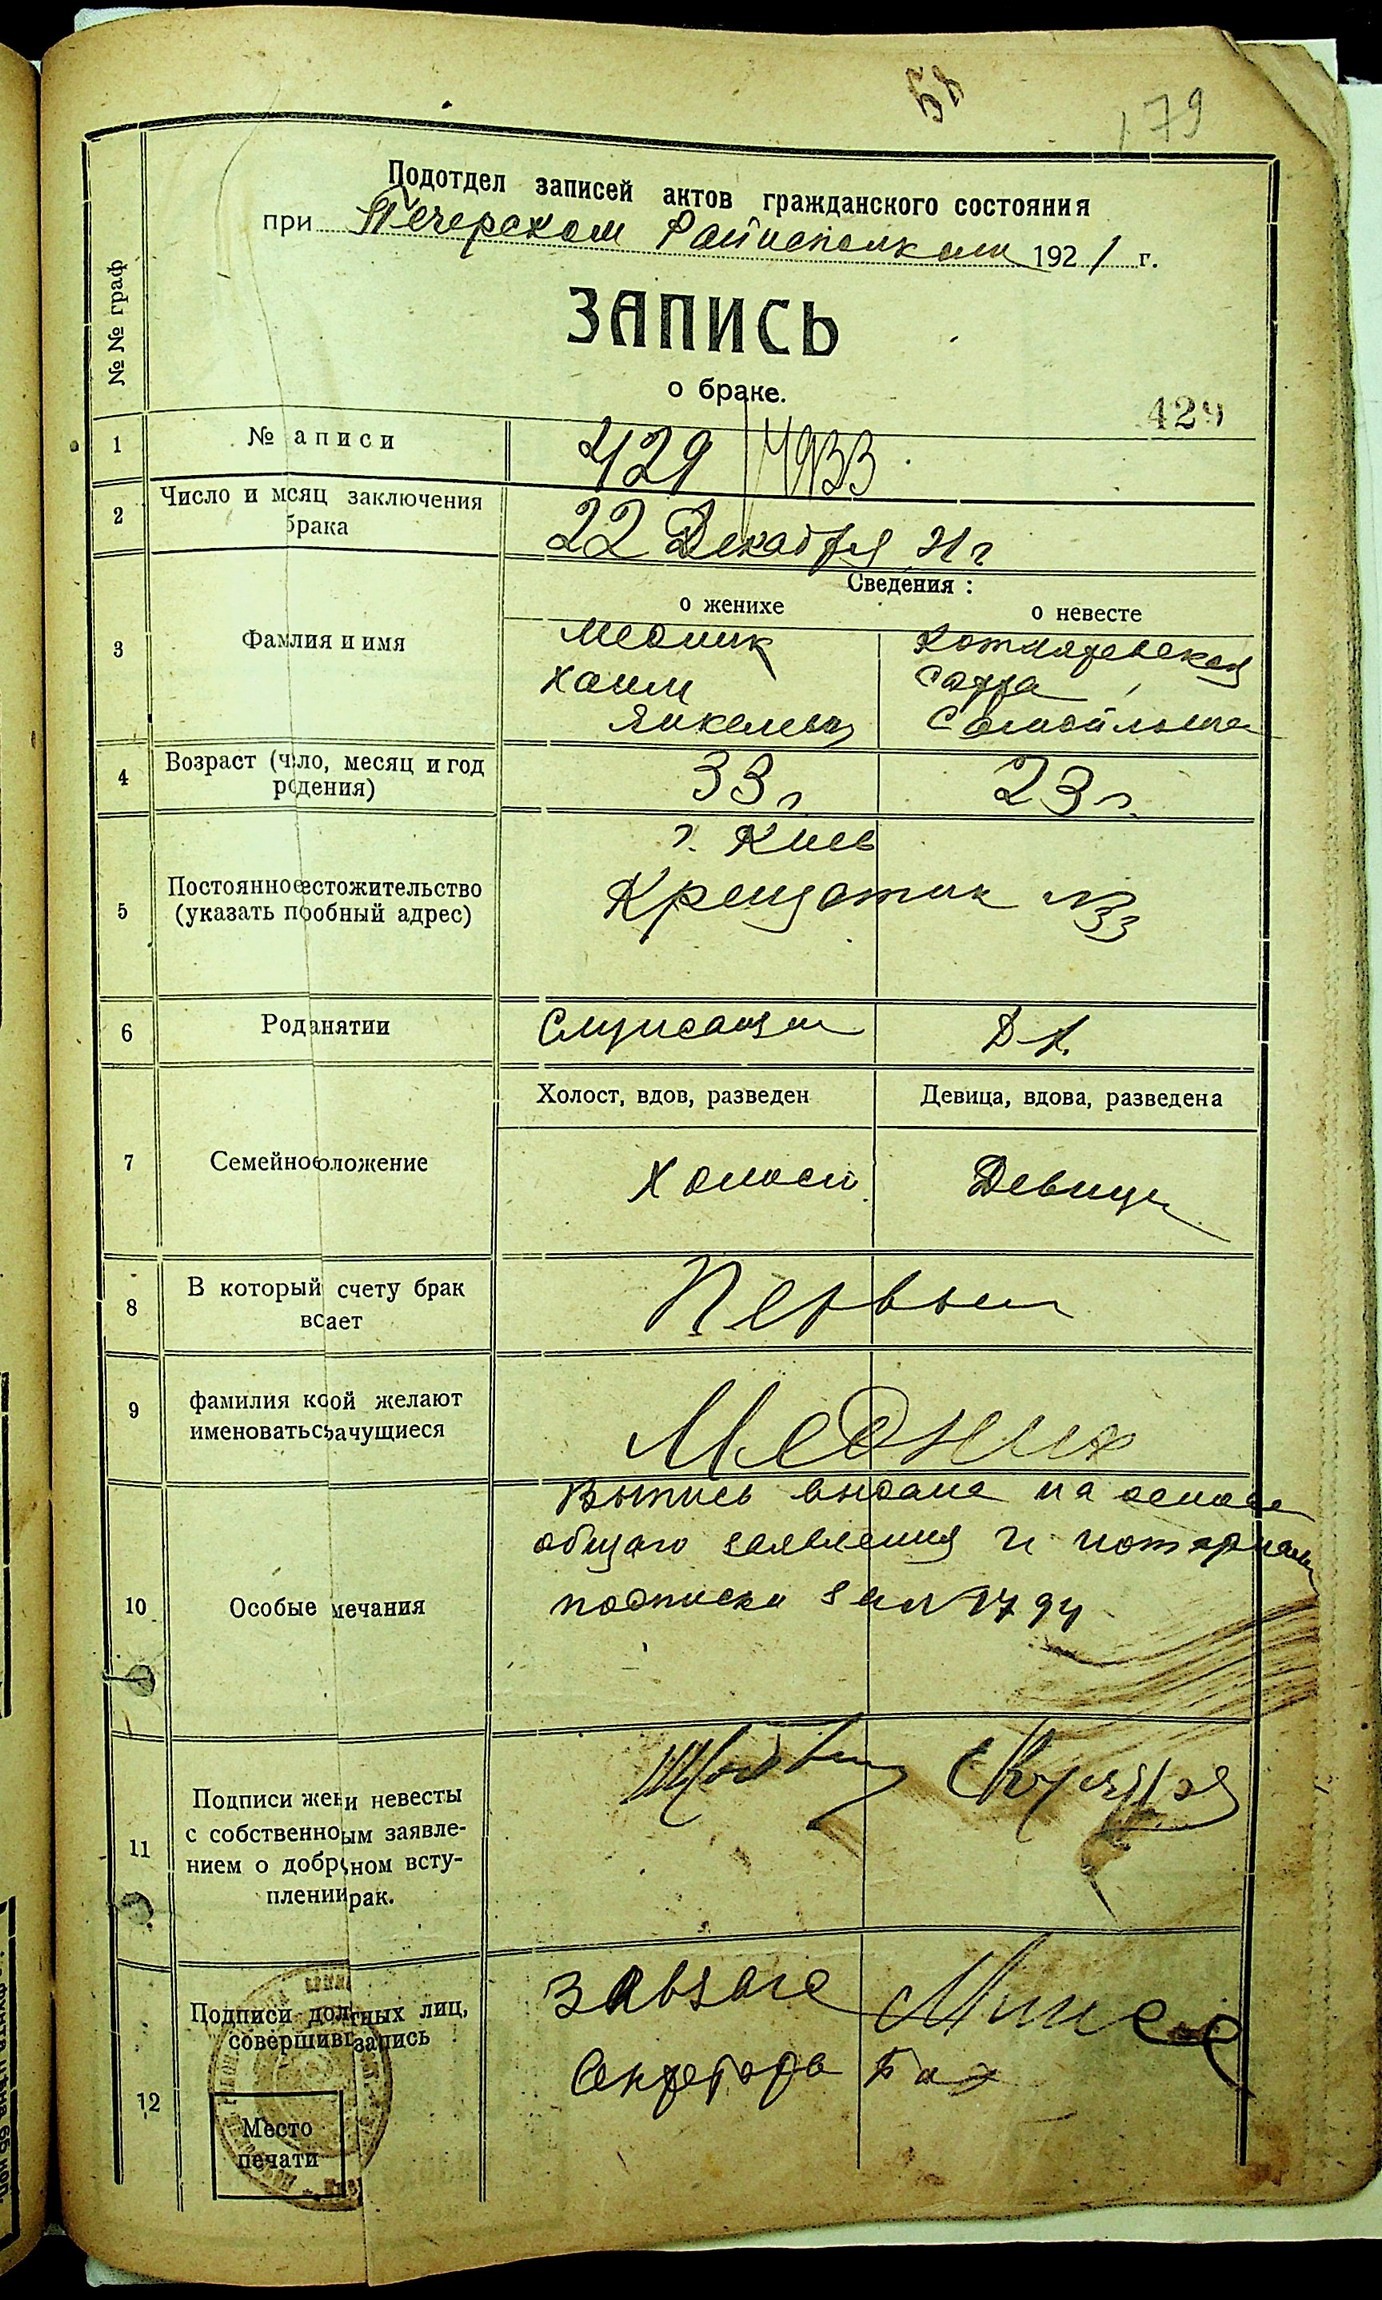 179
Подотдел записей актов гражданского состояния
при Печерском Райисполкоме 1921 г.
№№ граф
ЗАПИСЬ
о браке.
429
1 № аписи 429 4933
2 Число и мсяц заключения
брака
22 Декабря 21 г
Сведения:
о женихе о невесте
3 Фамлия и имя
Медник Котляревская
Хаим Сарра
Янкелев Самойловна
4 Возраст (чло, месяц и год
рдения)
33 г. 23 г.
г. Киев
5 Постоянноестожительство
(указать пробный адрес)
Крещатик № 33
6 Роданятии Служащий Д. х.
Холост, вдов, разведен Девица, вдова, разведена
7 Семейноеоложение Холост Девица
8 В который счету брак
всает
Первый
9 фамилия косой желают
именоватьсъачущиеся
Медник
Выпись выдана на основе
общаго заявления и нотариал
10 Особые мечания
подписки за № 1794
11 Подписи жени невесты
с собственноым заявле-
нием о добрном всту-
пленнирак.
12 Подписи должных лиц,
совершившзапись
Завзагс
Секретарь
Место
печати